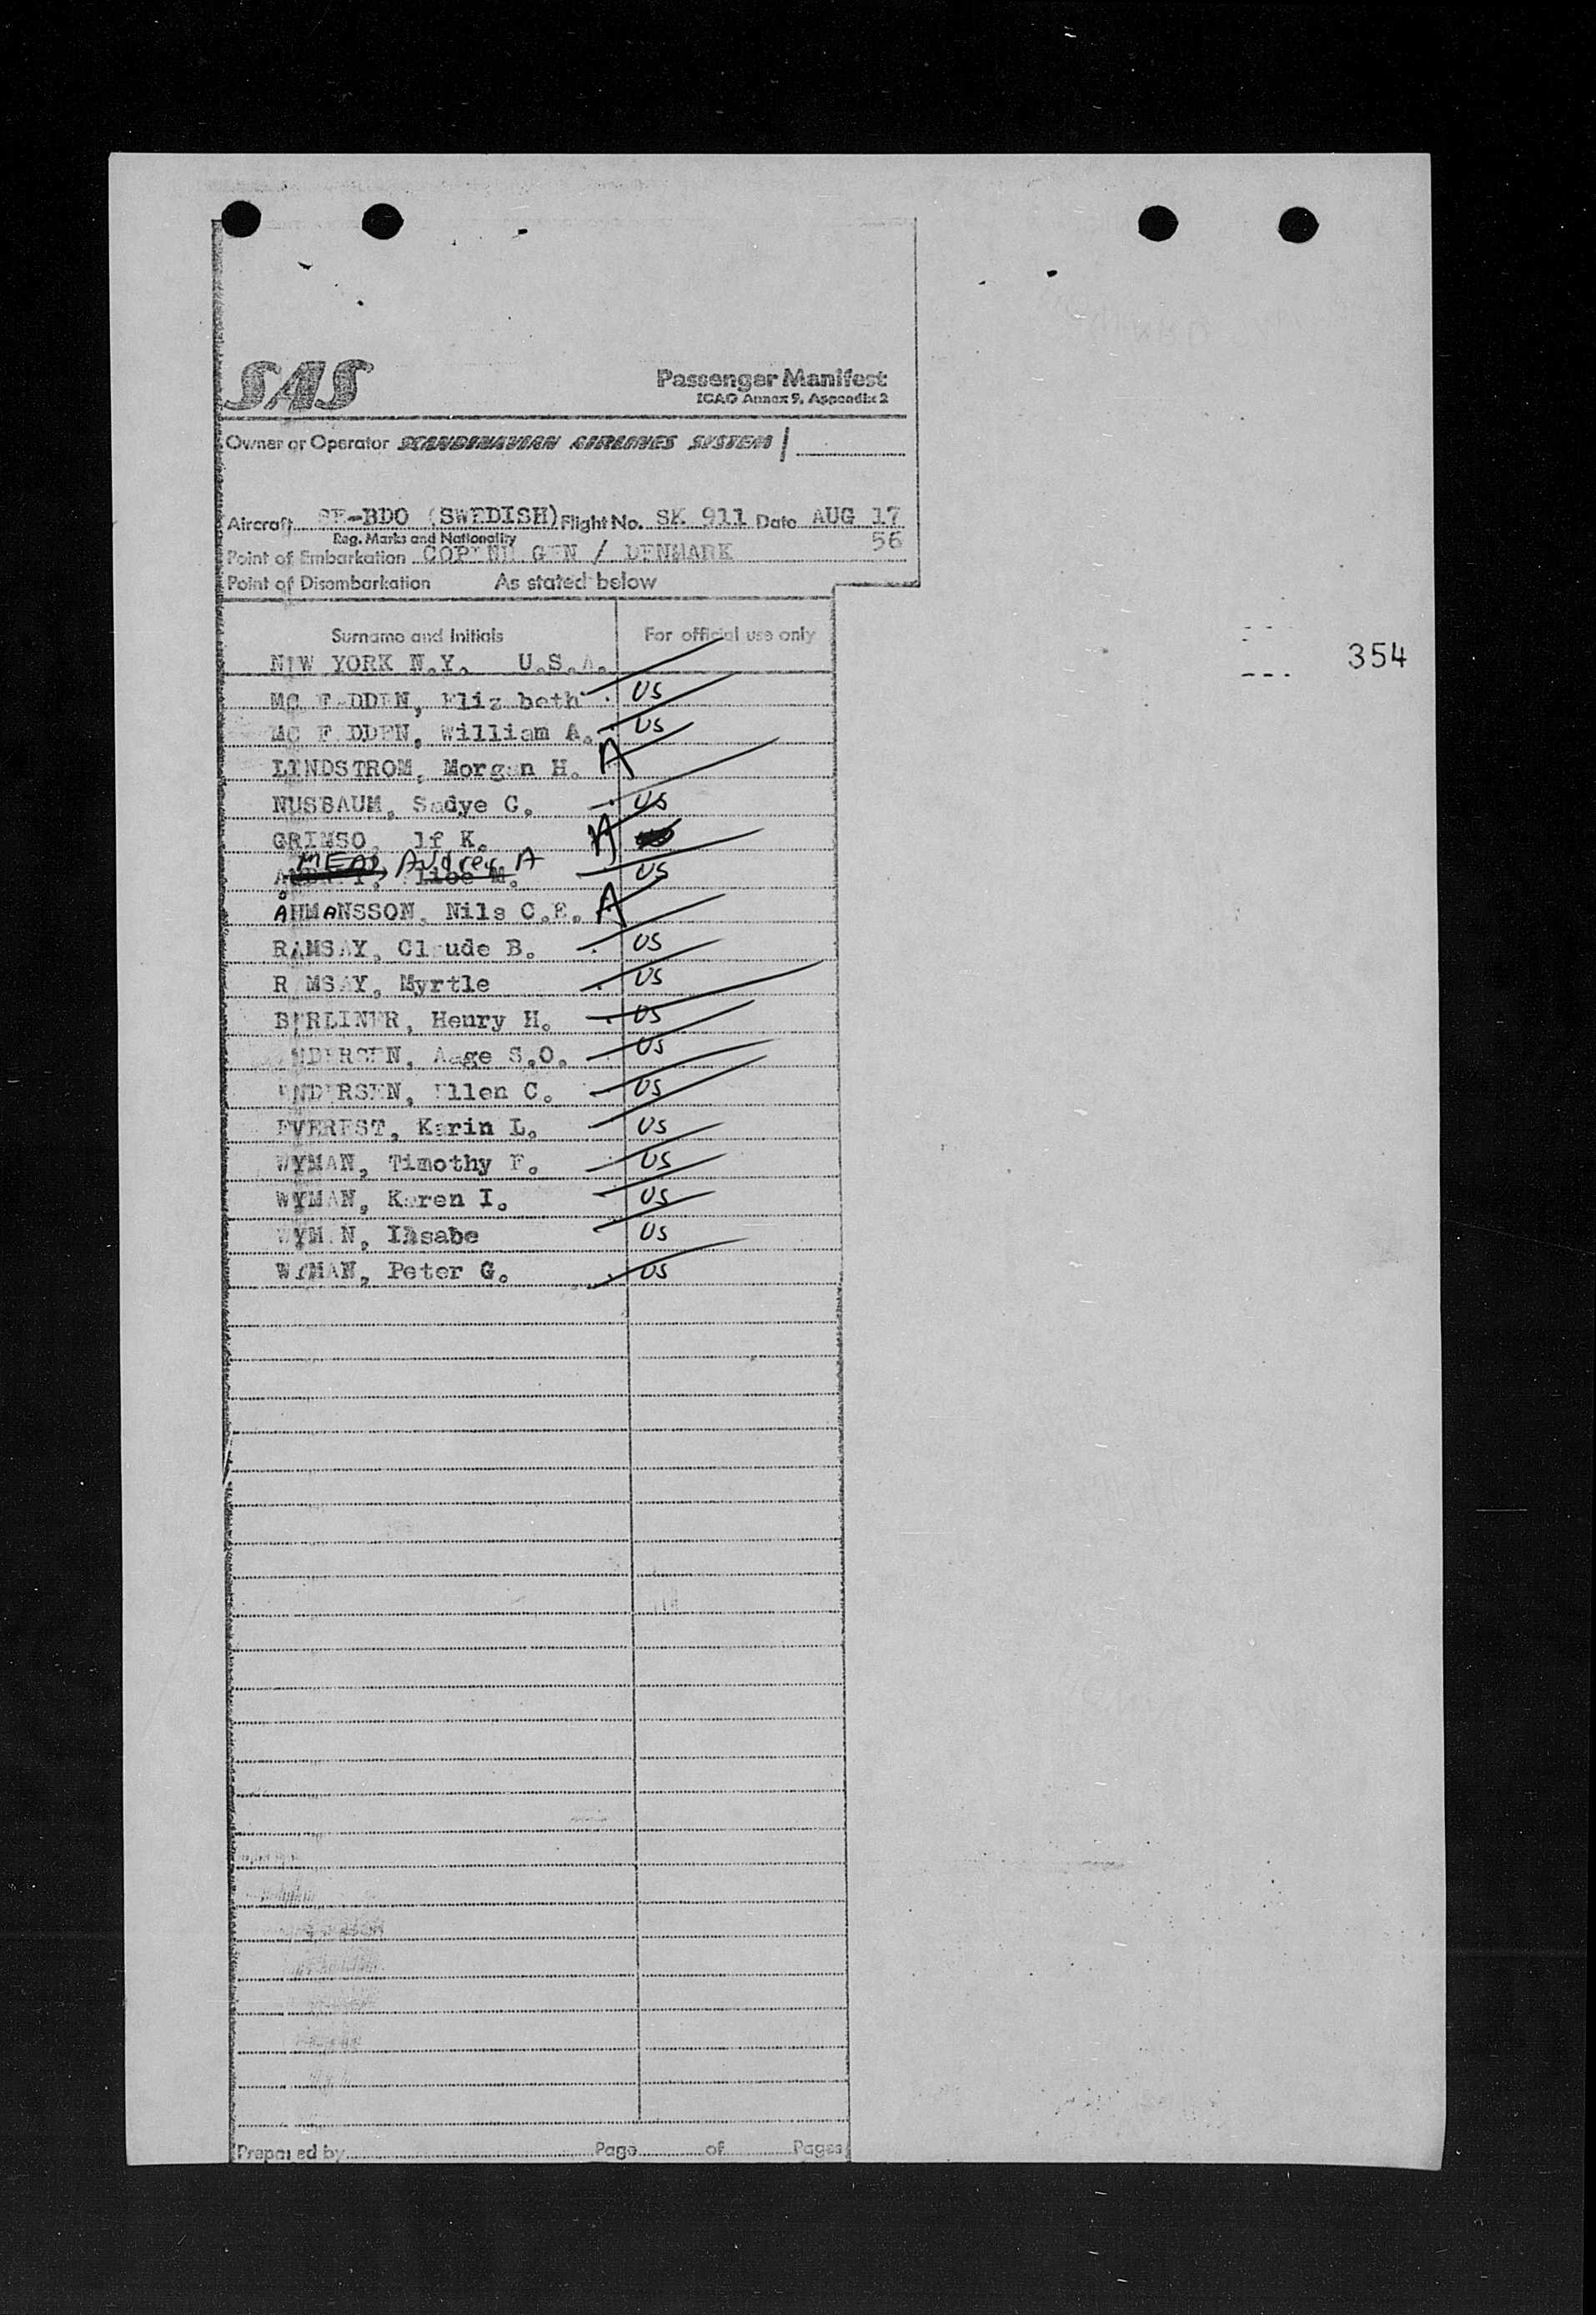 SAS
Passenger Manifest
ICAO Annex 9, Appendix 2
Owner or Operator SCANDINAVIAN AIRLINES SYSTEM
Aircraft SE-BDO (SWEDISH) Flight No. SK 911 Date AUG 17
Reg. Marks and Nationality 56
Point of Embarkation COPENHAGEN / DENMARK
Point of Disembarkation As stated below
Surname and Initials For official use only
354
NEW YORK N.Y. U.S.A.
MC FADDEN, Elizabeth US
MC FADDEN, William A. US
LINDSTROM, Morgan H. A
NUSBAUM, Sadye C. US
GRIMSO, lf K. A
MEAD, Audrey A
US
ÅHMANSSON, Nils C.E. A
RAMSAY, Claude B. US
RAMSAY, Myrtle US
BERLINER, Henry H. US
ANDERSEN, Aage S.O. US
ANDERSEN, Ellen C. US
EVEREST, Karin L. US
WYMAN, Timothy F. US
WYMAN, Karen I. US
WYMAN, US
WYMAN, Peter G. US
Prepared by Page of Pages